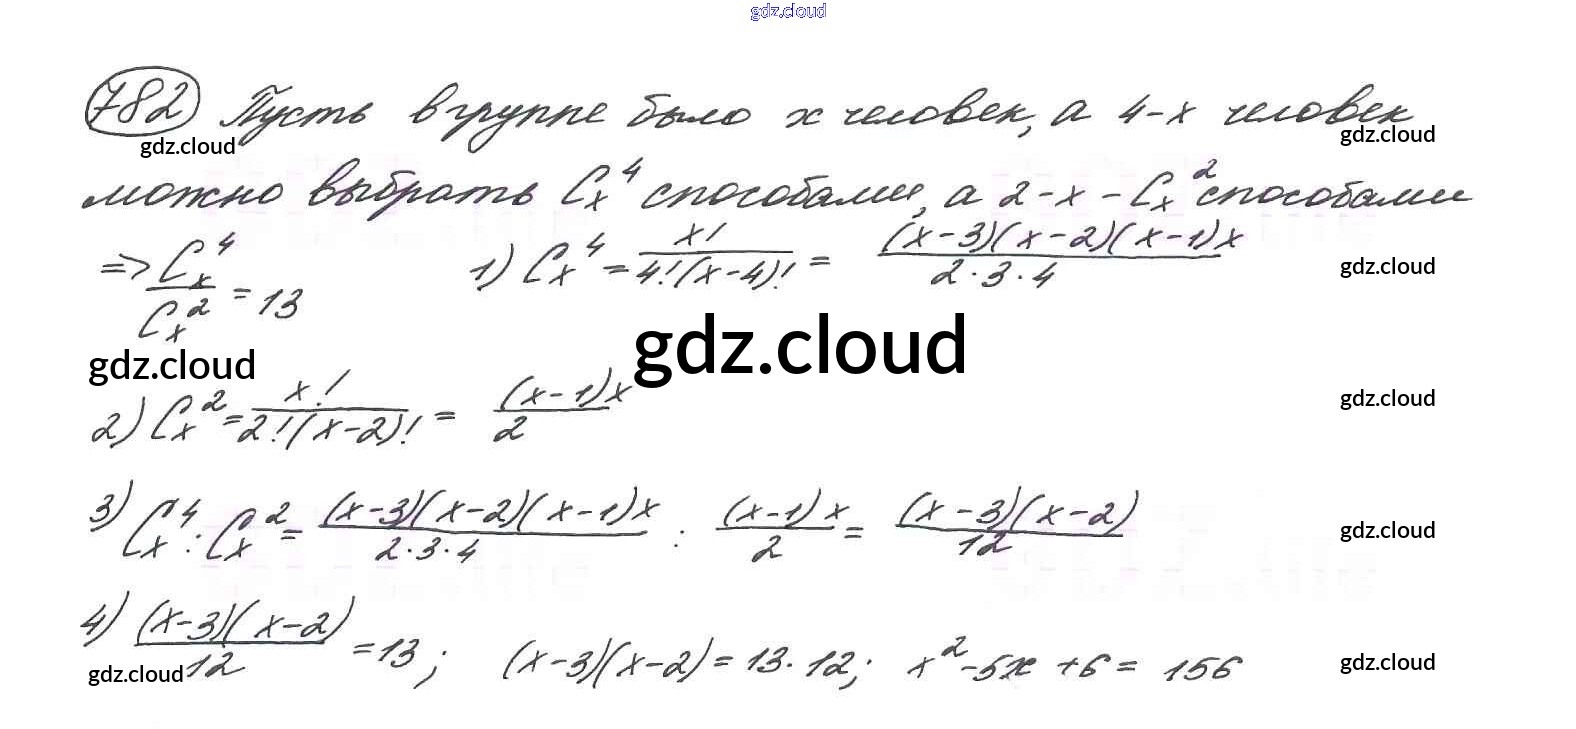 gdz.cloud
782 Пусть в группе было x человек, а 4-х человек
gdz.cloud gdz.cloud
можно выбрать C_x^4 способами, а 2-х - C_x^2 способами
=> C_x^4 / C_x^2 = 13 1) C_x^4 = x! / 4!(x-4)! = (x-3)(x-2)(x-1)x / 2·3·4 gdz.cloud
gdz.cloud gdz.cloud
2) C_x^2 = x! / 2!(x-2)! = (x-1)x / 2 gdz.cloud
3) C_x^4 : C_x^2 = (x-3)(x-2)(x-1)x / 2·3·4 : (x-1)x / 2 = (x-3)(x-2) / 12 gdz.cloud
4) (x-3)(x-2) / 12 = 13; (x-3)(x-2) = 13·12; x^2 -5x +6 = 156 gdz.cloud
gdz.cloud